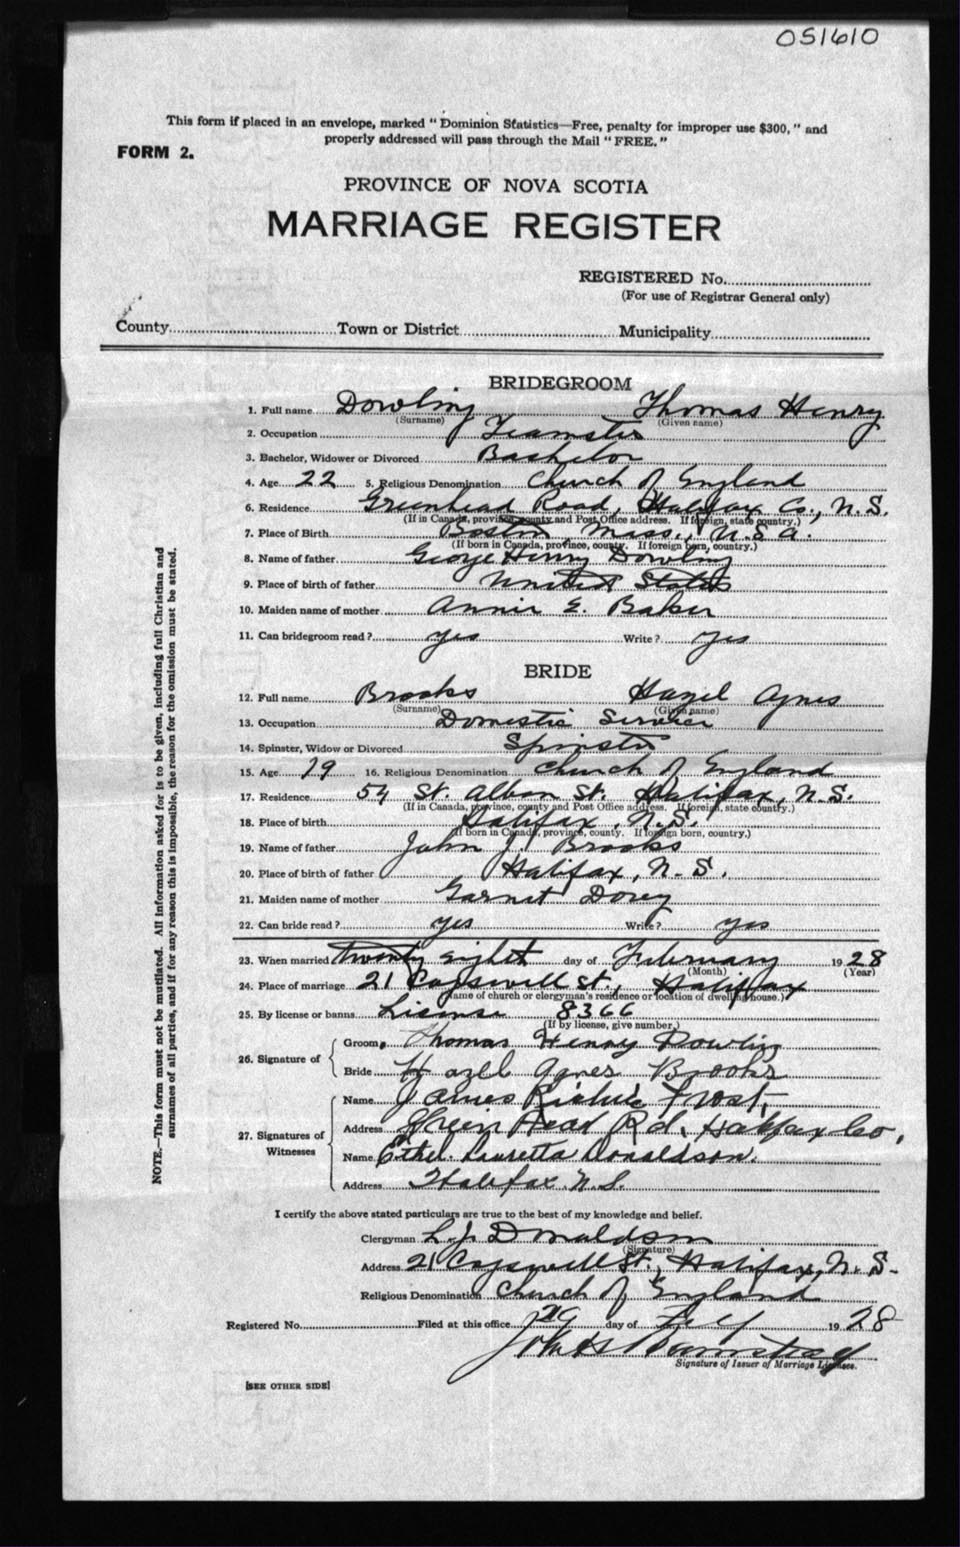 051610
This form if placed in an envelope, marked "Dominion Statistics—Free, penalty for improper use $300," and
properly addressed will pass through the Mail "FREE."
FORM 2.
PROVINCE OF NOVA SCOTIA
MARRIAGE REGISTER
REGISTERED No.
(For use of Registrar General only)
County Town or District Municipality
BRIDEGROOM
1. Full name Dowling Thomas Henry
(Surname) (Given name)
2. Occupation Teamster
3. Bachelor, Widower or Divorced Bachelor
4. Age 22 5. Religious Denomination Church of England
6. Residence Greenhead Road, Halifax Co., N.S.
(If in Canada, province, county and Post Office address. If foreign, state country.)
7. Place of Birth Boston Mass., U.S.A.
(If born in Canada, province, county. If foreign born, country.)
8. Name of father George Henry Dowling
9. Place of birth of father United States
10. Maiden name of mother Annie E. Baker
11. Can bridegroom read? yes Write? yes
BRIDE
12. Full name Brooks Hazel Agnes
(Surname) (Given name)
13. Occupation Domestic Service
14. Spinster, Widow or Divorced Spinster
15. Age 19 16. Religious Denomination Church of England
17. Residence 54 St. Alban St. Halifax, N.S.
(If in Canada, province, county and Post Office address. If foreign, state country.)
18. Place of birth Halifax, N.S.
(If born in Canada, province, county. If foreign born, country.)
19. Name of father John J. Brooks
20. Place of birth of father Halifax, N.S.
21. Maiden name of mother Garnet Dorey
22. Can bride read? yes Write? yes
23. When married twenty eight day of February 1928
(Month) (Year)
24. Place of marriage 21 Cogswell St., Halifax
(Name of church or clergyman's residence or location of dwelling house.)
25. By license or banns License 8366
(If by license, give number.)
26. Signature of
Groom Thomas Henry Dowling
Bride Hazel Agnes Brooks
27. Signatures of Witnesses
Name James Richie Frost
Address Green Head Rd. Halifax Co.
Name Ethel Lauretta Donaldson.
Address Halifax N.S.
I certify the above stated particulars are true to the best of my knowledge and belief.
Clergyman L.J. Donaldson
(Signature)
Address 21 Cogswell St., Halifax, N.S.
Religious Denomination Church of England
Registered No. Filed at this office 29 day of Feby 1928
Signature of Issuer of Marriage Licenses.
[SEE OTHER SIDE]
NOTE.—This form must not be mutilated. All information asked for is to be given, including full Christian and
surnames of all parties, and if for any reason this is impossible, the reason for the omission must be stated.